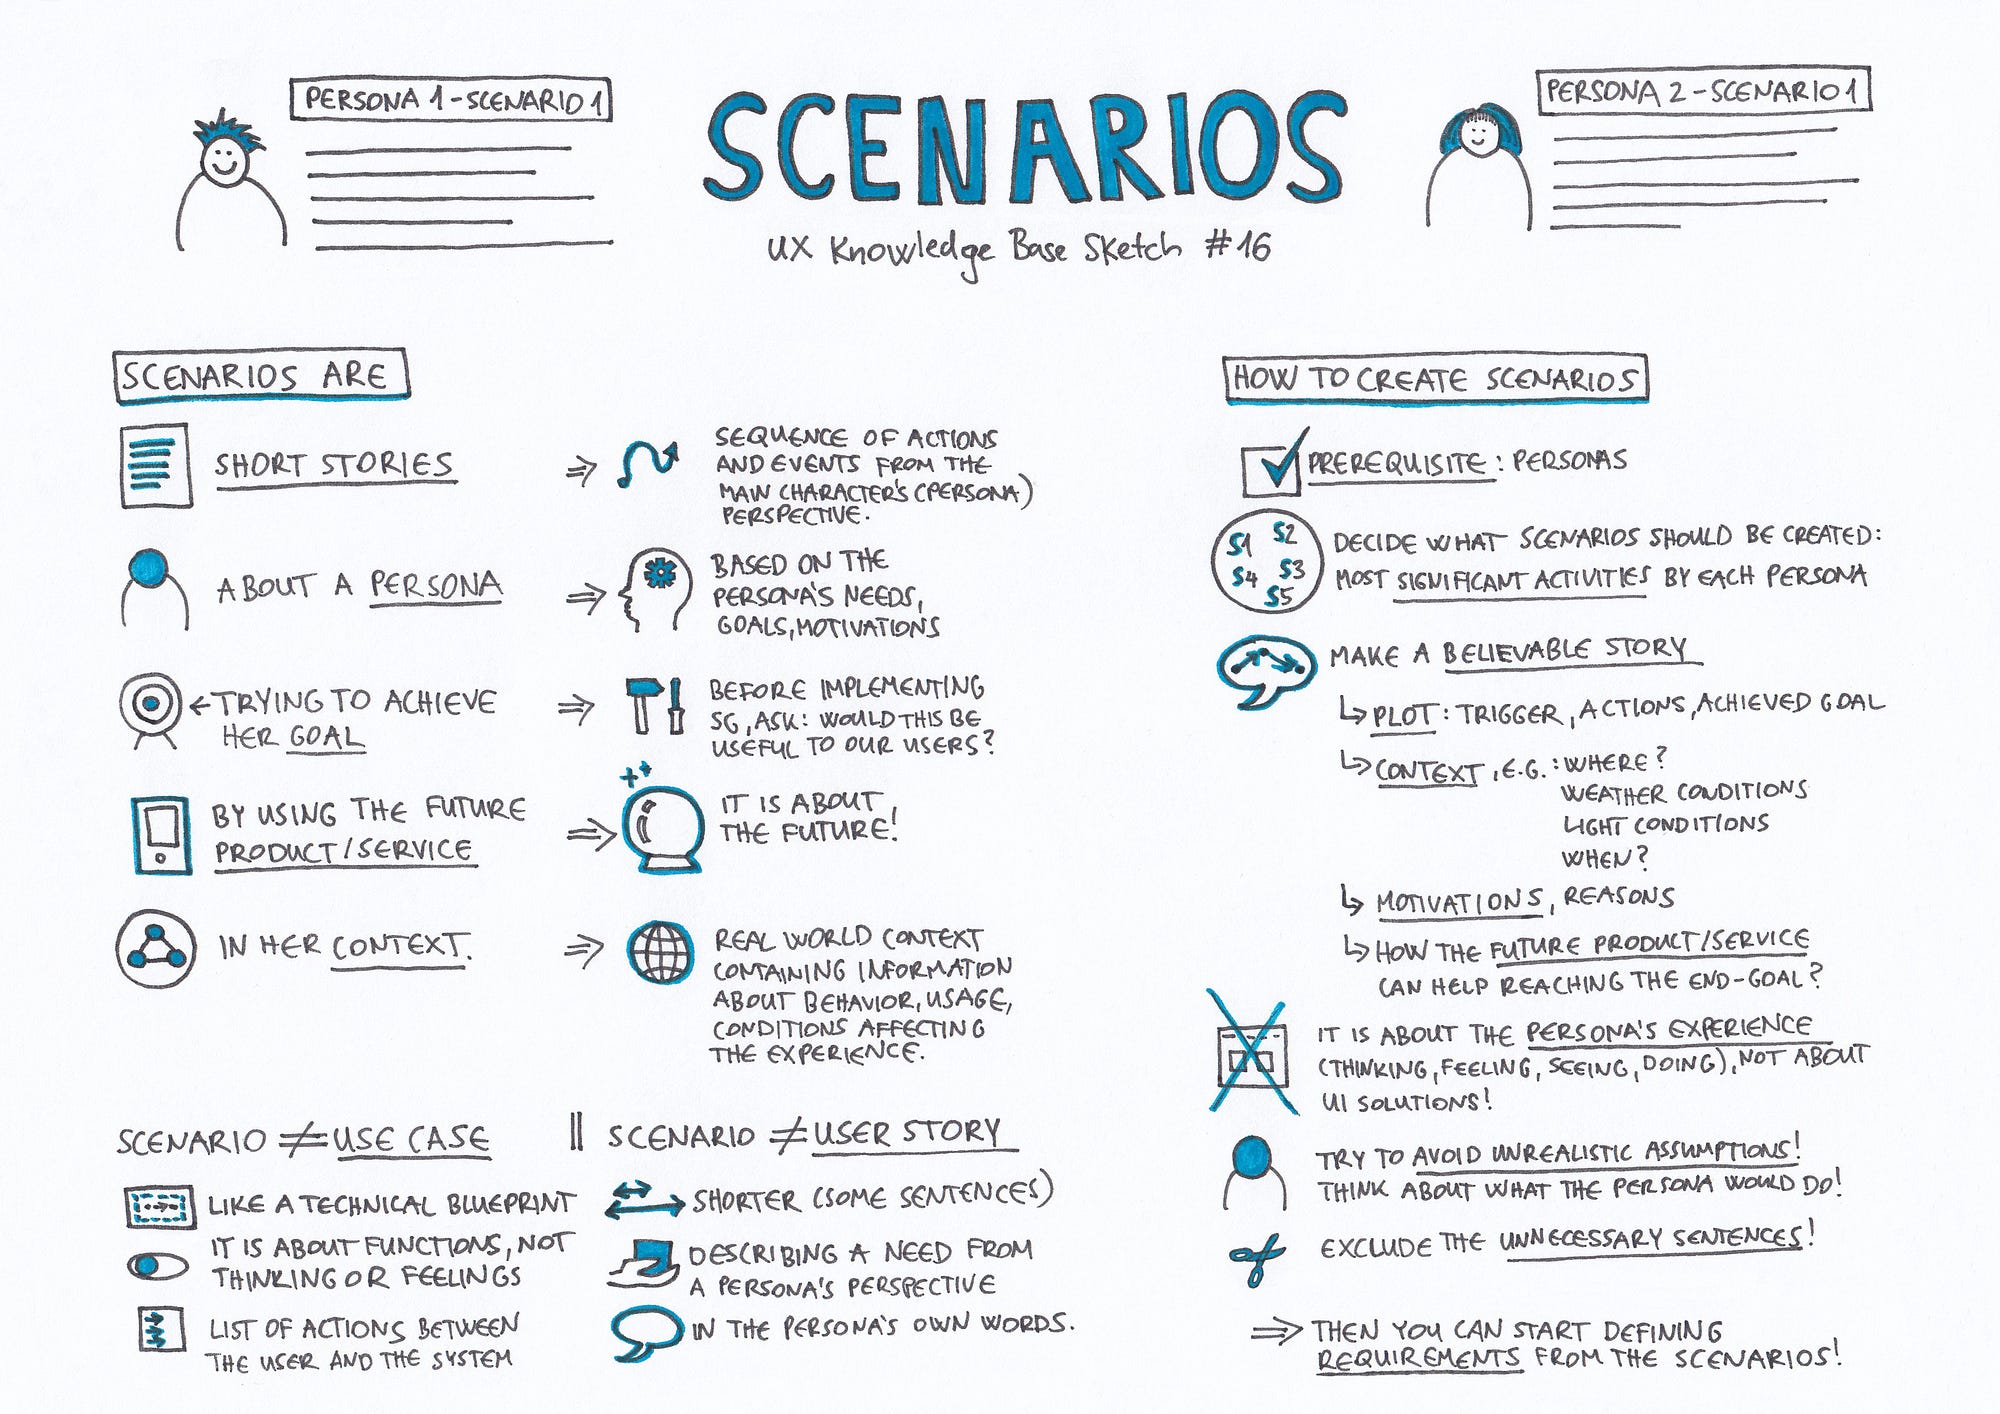 PERSONA 1 - SCENARIO 1
SCENARIOS
UX Knowledge Base Sketch #16
PERSONA 2 - SCENARIO 1
SCENARIOS ARE
SHORT STORIES
⇒ SEQUENCE OF ACTIONS
AND EVENTS FROM THE
MAIN CHARACTER'S (PERSONA)
PERSPECTIVE.
ABOUT A PERSONA
⇒ BASED ON THE
PERSONA'S NEEDS,
GOALS, MOTIVATIONS
← TRYING TO ACHIEVE
HER GOAL
⇒ BEFORE IMPLEMENTING
SG, ASK: WOULD THIS BE
USEFUL TO OUR USERS?
BY USING THE FUTURE
PRODUCT/SERVICE
⇒ IT IS ABOUT
THE FUTURE!
IN HER CONTEXT.
⇒ REAL WORLD CONTEXT
CONTAINING INFORMATION
ABOUT BEHAVIOR, USAGE,
CONDITIONS AFFECTING
THE EXPERIENCE.
SCENARIO ≠ USE CASE
LIKE A TECHNICAL BLUEPRINT
IT IS ABOUT FUNCTIONS, NOT
THINKING OR FEELINGS
LIST OF ACTIONS BETWEEN
THE USER AND THE SYSTEM
SCENARIO ≠ USER STORY
SHORTER (SOME SENTENCES)
DESCRIBING A NEED FROM
A PERSONA'S PERSPECTIVE
IN THE PERSONA'S OWN WORDS.
HOW TO CREATE SCENARIOS
PREREQUISITE: PERSONAS
S1 S2
S4 S3
S5
DECIDE WHAT SCENARIOS SHOULD BE CREATED:
MOST SIGNIFICANT ACTIVITIES BY EACH PERSONA
MAKE A BELIEVABLE STORY
↳ PLOT: TRIGGER, ACTIONS, ACHIEVED GOAL
↳ CONTEXT, E.G.: WHERE?
WEATHER CONDITIONS
LIGHT CONDITIONS
WHEN?
↳ MOTIVATIONS, REASONS
↳ HOW THE FUTURE PRODUCT/SERVICE
CAN HELP REACHING THE END-GOAL?
IT IS ABOUT THE PERSONA'S EXPERIENCE
(THINKING, FEELING, SEEING, DOING), NOT ABOUT
UI SOLUTIONS!
TRY TO AVOID UNREALISTIC ASSUMPTIONS!
THINK ABOUT WHAT THE PERSONA WOULD DO!
EXCLUDE THE UNNECESSARY SENTENCES!
⇒ THEN YOU CAN START DEFINING
REQUIREMENTS FROM THE SCENARIOS!